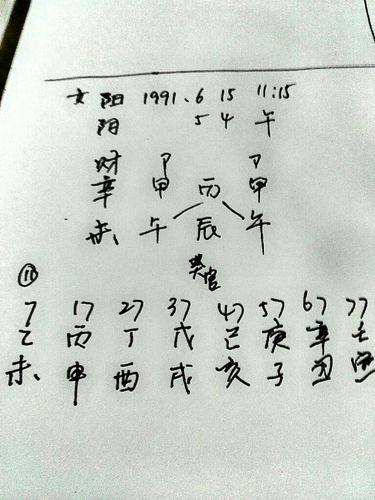 女 阳 1991.6 15 11:15
阴 5 4 午
财 卩 卩
辛 甲 丙 甲
未 午 辰 午
癸官
⑩
7 17 27 37 47 57 67 77
乙 丙 丁 戊 己 庚 辛 壬
未 申 酉 戌 亥 子 丑 寅